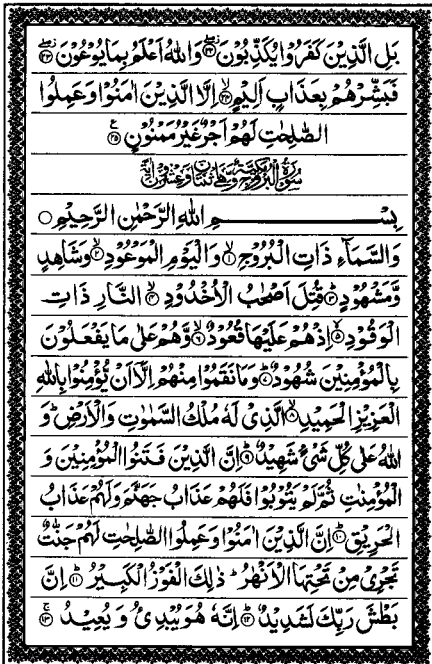 بَلِ الَّذِيْنَ كَفَرُوْا يُكَذِّبُوْنَ ﴿۲۲﴾ وَاللّٰهُ اَعْلَمُ بِمَا يُوْعُوْنَ ﴿۲۳﴾
فَبَشِّرْهُمْ بِعَذَابٍ اَلِيْمٍ ﴿۲۴﴾ اِلَّا الَّذِيْنَ اٰمَنُوْا وَعَمِلُوا
الصّٰلِحٰتِ لَهُمْ اَجْرٌ غَيْرُ مَمْنُوْنٍ ﴿۲۵﴾
سُوْرَةُ الْبُرُوْجِ مَكِّيَّةٌ وَّهِيَ ثِنْتَانِ وَعِشْرُوْنَ اٰيَةً
بِسْمِ اللّٰهِ الرَّحْمٰنِ الرَّحِيْمِ ○
وَالسَّمَآءِ ذَاتِ الْبُرُوْجِ ﴿۱﴾ وَالْيَوْمِ الْمَوْعُوْدِ ﴿۲﴾ وَشَاهِدٍ
وَّمَشْهُوْدٍ ﴿۳﴾ قُتِلَ اَصْحٰبُ الْاُخْدُوْدِ ﴿۴﴾ النَّارِ ذَاتِ
الْوَقُوْدِ ﴿۵﴾ اِذْ هُمْ عَلَيْهَا قُعُوْدٌ ﴿۶﴾ وَّهُمْ عَلٰى مَا يَفْعَلُوْنَ
بِالْمُؤْمِنِيْنَ شُهُوْدٌ ﴿۷﴾ وَمَا نَقَمُوْا مِنْهُمْ اِلَّاۤ اَنْ يُّؤْمِنُوْا بِاللّٰهِ
الْعَزِيْزِ الْحَمِيْدِ ﴿۸﴾ الَّذِيْ لَهٗ مُلْكُ السَّمٰوٰتِ وَالْاَرْضِ ؕ وَ
اللّٰهُ عَلٰى كُلِّ شَيْءٍ شَهِيْدٌ ﴿۹﴾ اِنَّ الَّذِيْنَ فَتَنُوا الْمُؤْمِنِيْنَ وَ
الْمُؤْمِنٰتِ ثُمَّ لَمْ يَتُوْبُوْا فَلَهُمْ عَذَابُ جَهَنَّمَ وَلَهُمْ عَذَابُ
الْحَرِيْقِ ﴿۱۰﴾ اِنَّ الَّذِيْنَ اٰمَنُوْا وَعَمِلُوا الصّٰلِحٰتِ لَهُمْ جَنّٰتٌ
تَجْرِيْ مِنْ تَحْتِهَا الْاَنْهٰرُ ؕ ذٰلِكَ الْفَوْزُ الْكَبِيْرُ ﴿۱۱﴾ اِنَّ
بَطْشَ رَبِّكَ لَشَدِيْدٌ ﴿۱۲﴾ اِنَّهٗ هُوَ يُبْدِئُ وَيُعِيْدُ ﴿۱۳﴾